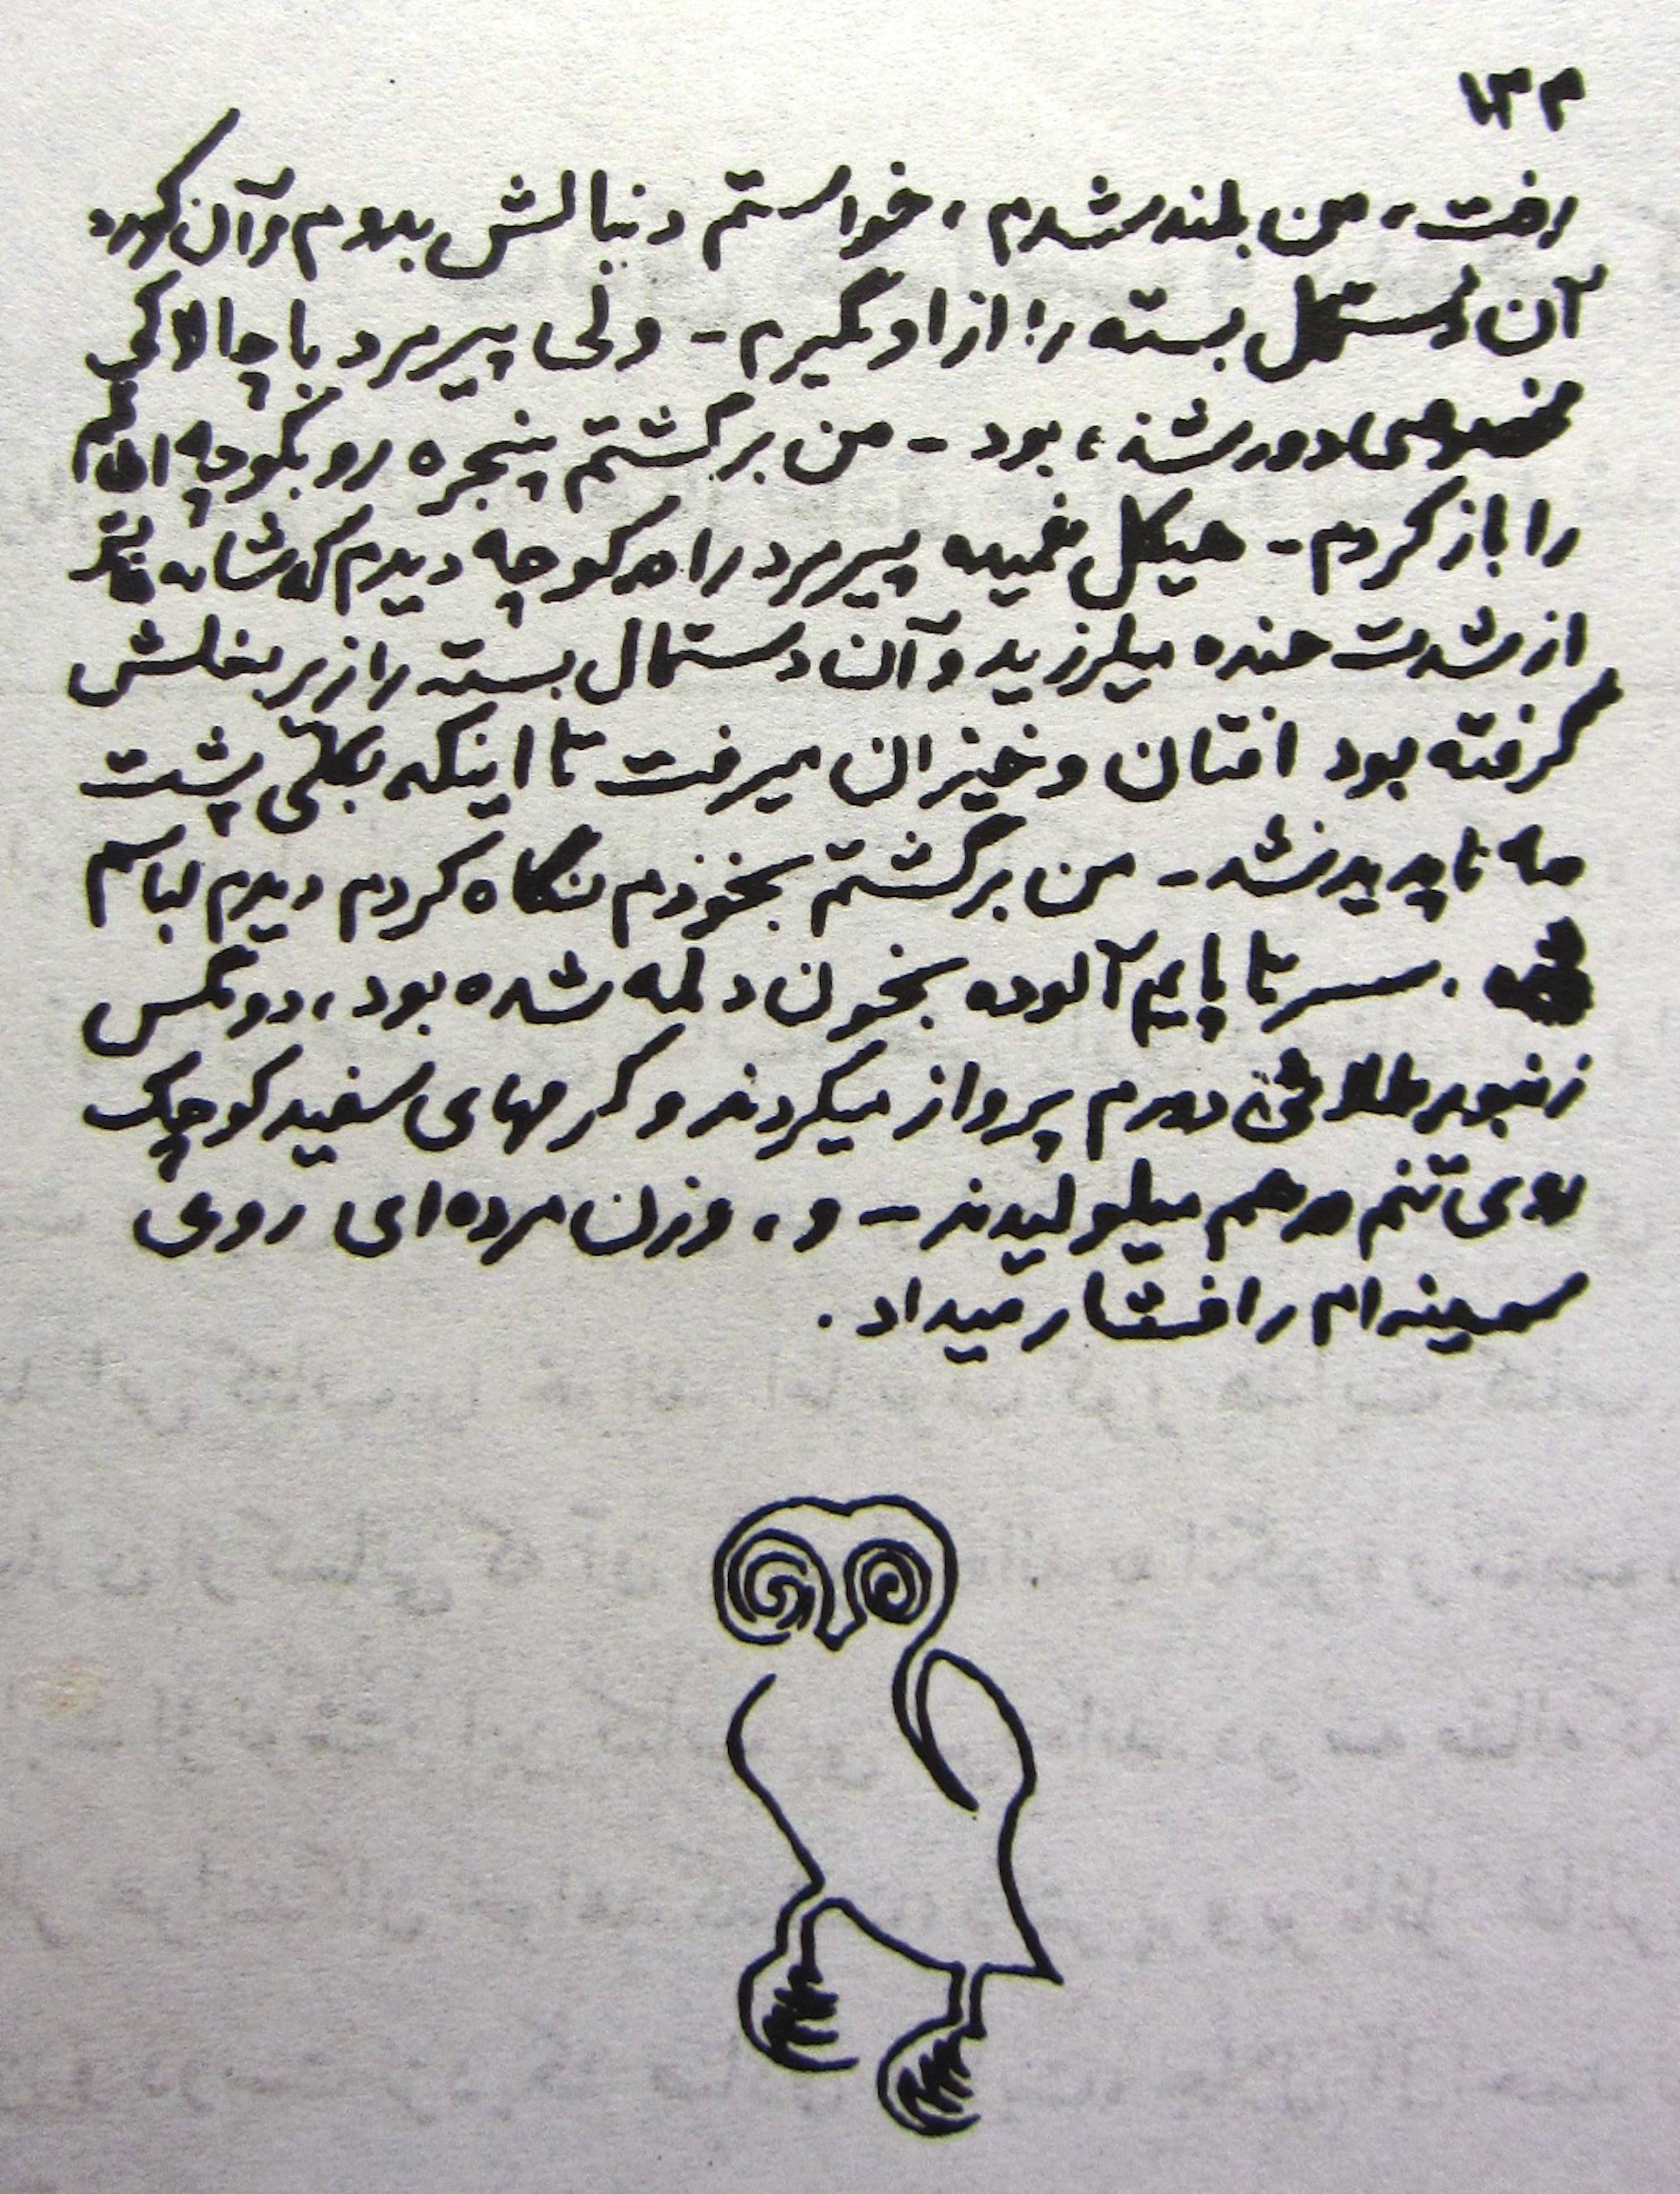 ۱۴۴
رفت، من بلند شدم، خواستم دنبالش بدوم و آن کوزه
آن دستمال بسته را از او بگیرم - ولی پیرمرد با چالاکی
مخصوصی دور شده، بود - من برگشتم پنجره رو بکوچه اطاقم
را باز کردم - هیکل خمیده پیرمرد را در کوچه دیدم که شانه هایش
از شدت خنده میلرزید و آن دستمال بسته را زیر بغلش
گرفته بود افتان و خیزان میرفت تا اینکه بکلی پشت
مه ناپدید شد - من برگشتم بخودم نگاه کردم دیدم لباسم
. سر تا پایم آلوده بخون دلمه شده بود، دو مگس
زنبور طلائی دورم پرواز میکردند و کرمهای سفید کوچک
روی تنم در هم میلولیدند - و، وزن مرده ای روی
سینه ام را فشار میداد .